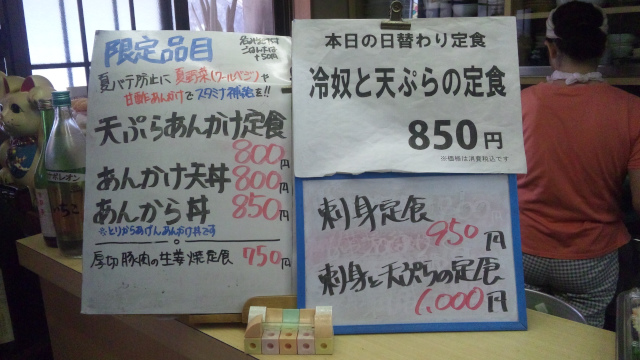 限定品目
ごはん大は
+50円
夏バテ防止に夏野菜(クールベジ)や
甘酢あんかけでスタミナ補給を!!
天ぷらあんかけ定食
800円
あんかけ天丼 800円
あんから丼 850円
※とりからあげんあんかけ丼です
厚切豚肉の生姜焼定食 750円
本日の日替わり定食
冷奴と天ぷらの定食
850円
※価格は消費税込です
刺身定食
950円
刺身と天ぷらの定食
1,000円
ナポレオン